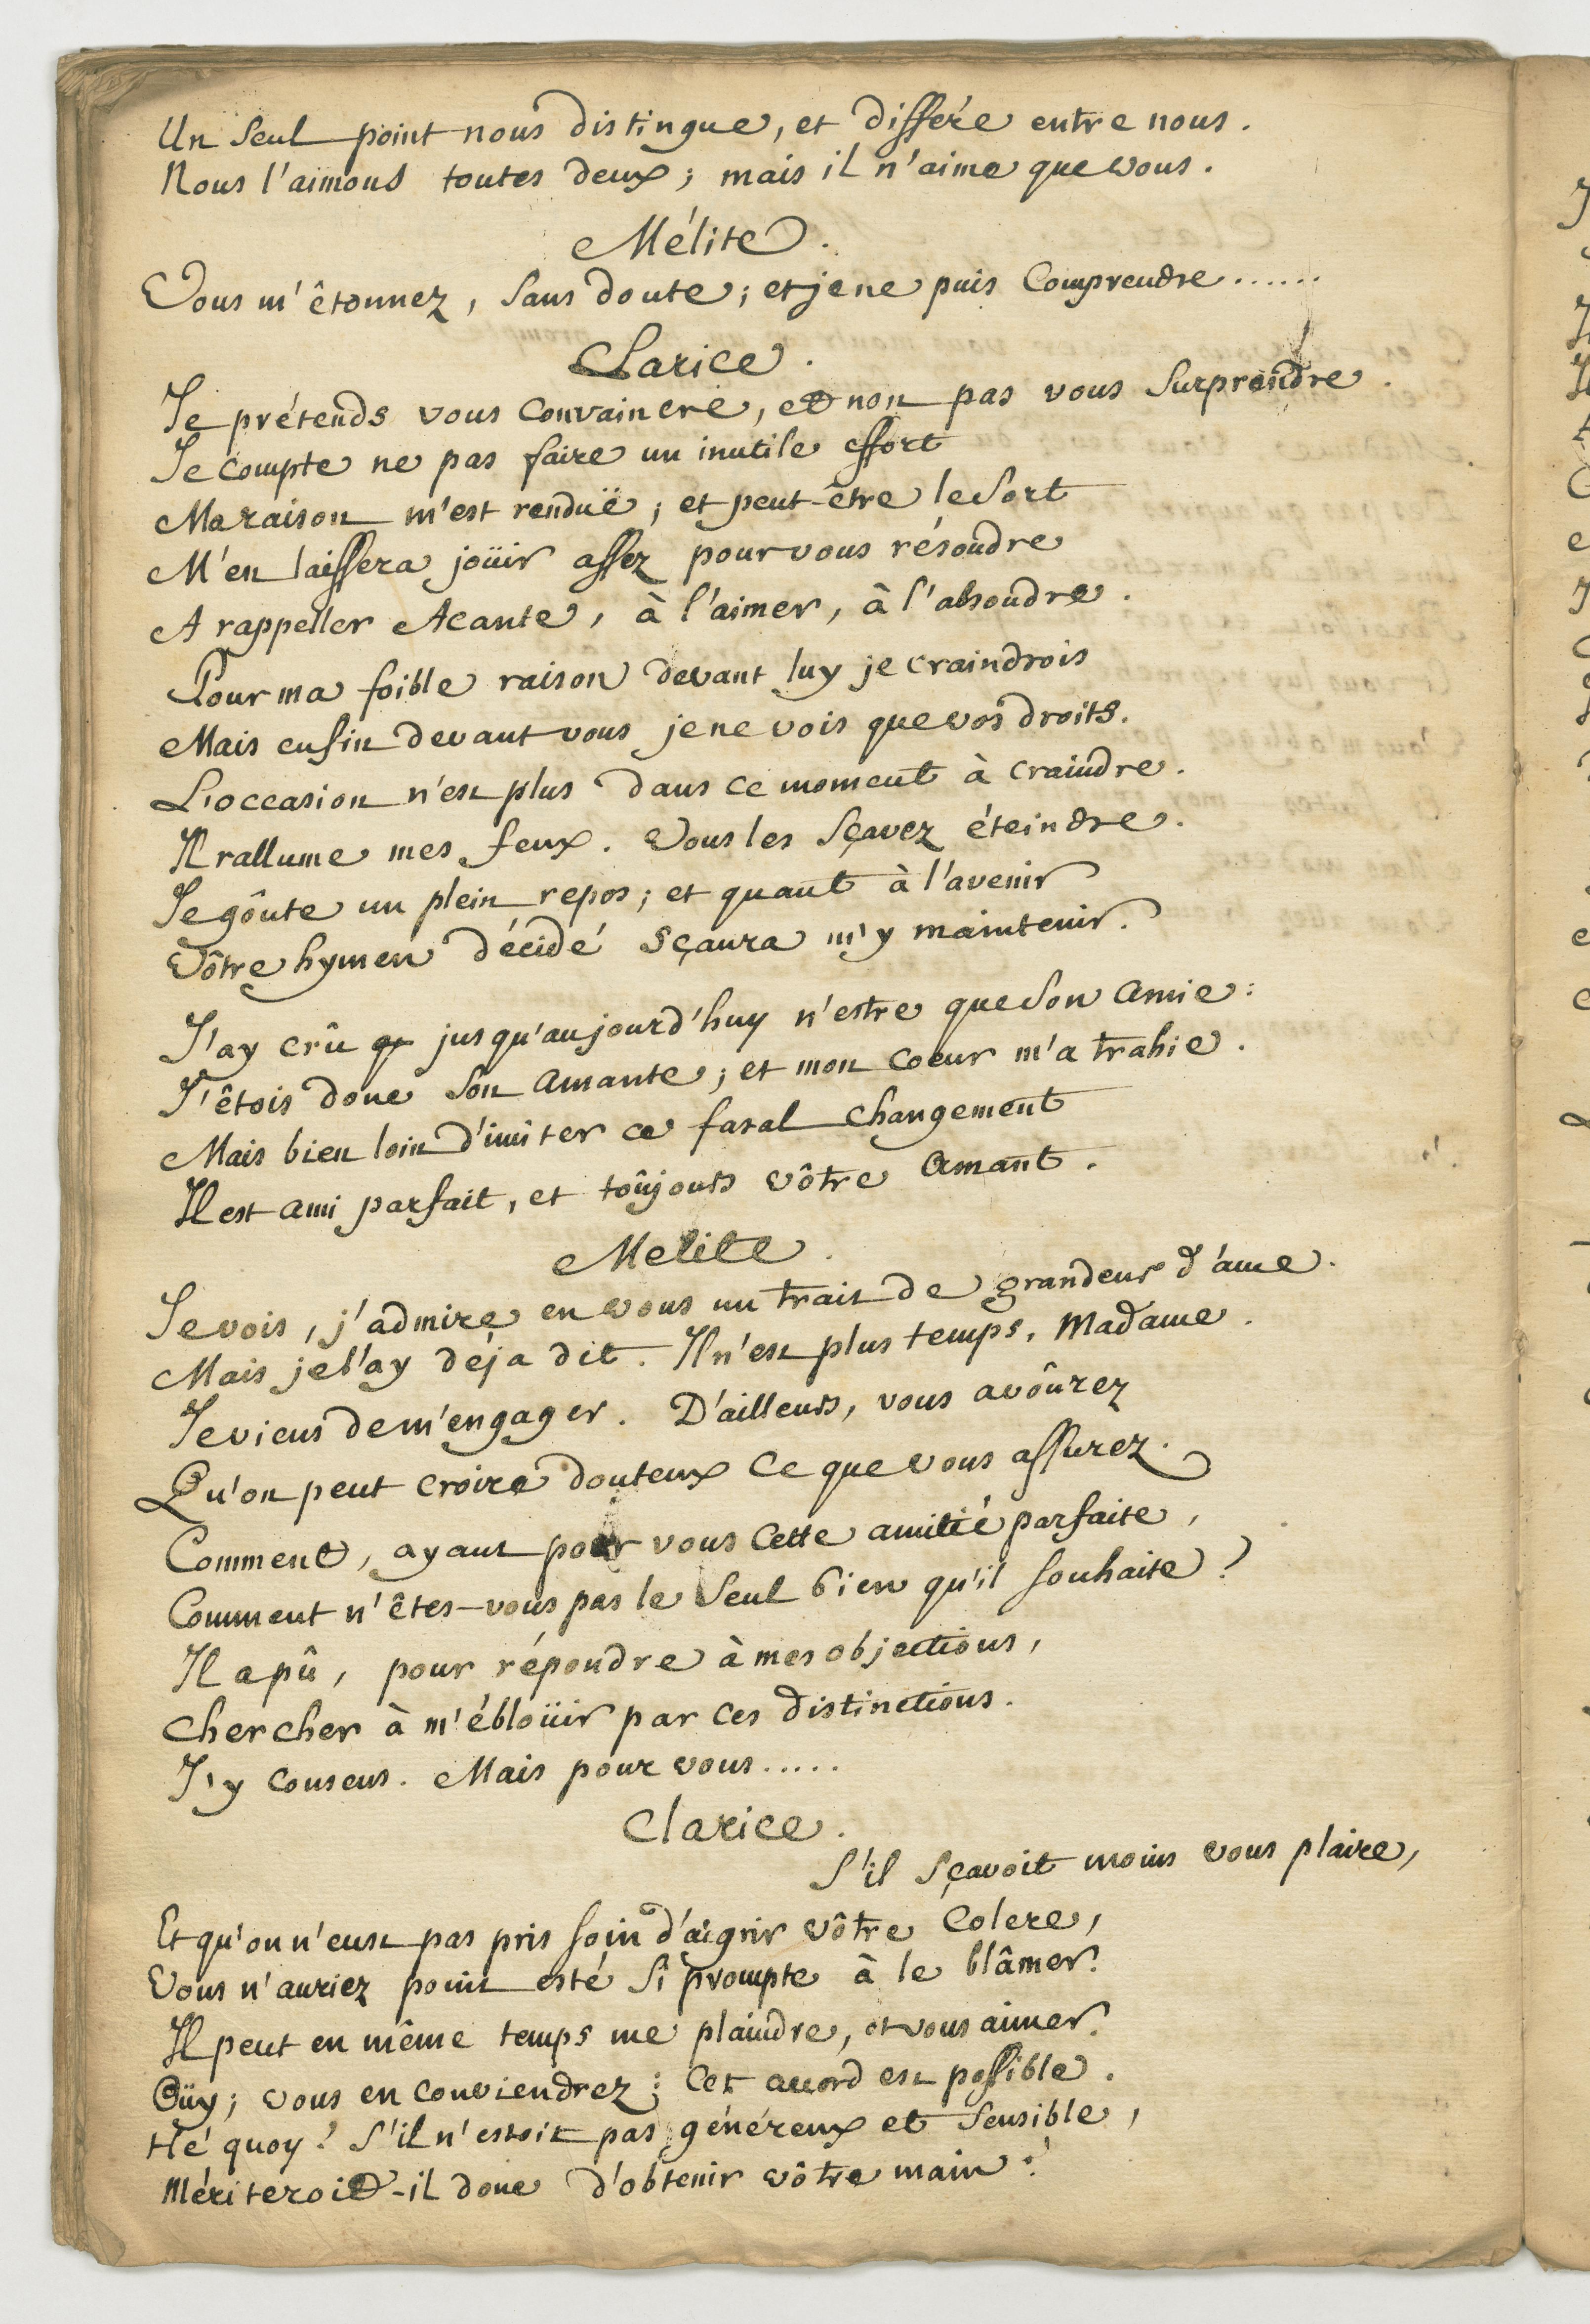 Un seul point nous distingue, et differe entre nous.
Nous l'aimons toutes deux; mais il n'aime que vous.
Mélite.
Vous m'êtonnez, sans doute; et je ne puis comprendre......
Clarice.
Je prétends vous convaincre, et non pas vous surprendre.
Je compte ne pas faire un inutile effort
Ma raison m'est renduë; et peut-être le sort
M'en laissera joüir assez pour vous résoudre
A rappeller Acante, à l'aimer, à l'absoudre.
Pour ma foible raison devant luy je craindrois
Mais enfin devant vous je ne vois que vos droits.
L'occasion n'est plus dans ce moment à craindre.
Il rallume mes feux. Vous les sçavez éteindre.
Je goûte un plein repos; et quant à l'avenir
Vôtre hymen décidé sçaura m'y maintenir.
J'ay crû jusqu'aujourd'huy n'estre que son amie:
J'êtois donc son amante; et mon coeur m'a trahie.
Mais bien loin d'imiter ce fatal changement
Il est ami parfait, et toûjours vôtre amant.
Melite.
Je vois, j'admire en vous un trait de grandeur d'ame.
Mais je l'ay déja dit. Il n'est plus temps, Madame.
Je viens de m'engager. D'ailleurs, vous avoûrez
Qu'on peut croire douteux ce que vous assurez.
Comment, ayant pour vous cette amitié parfaite,
Comment n'êtes-vous pas le seul bien qu'il souhaite?
Il a pû, pour répondre à mes objections,
Chercher à m'ébloüir par ces distinctions.
J'y consens. Mais pour vous.....
Clarice.
S'il sçavoit moins vous plaire,
Et qu'on n'eust pas pris soin d'aigrir vôtre colere,
Vous n'auriez point esté si prompte à le blâmer.
Il peut en même temps me plaindre, et vous aimer.
Oüy; vous en conviendrez: cet accord est possible.
Hé quoy! S'il n'estoit pas généreux et sensible,
Mériteroit-il donc d'obtenir vôtre main?